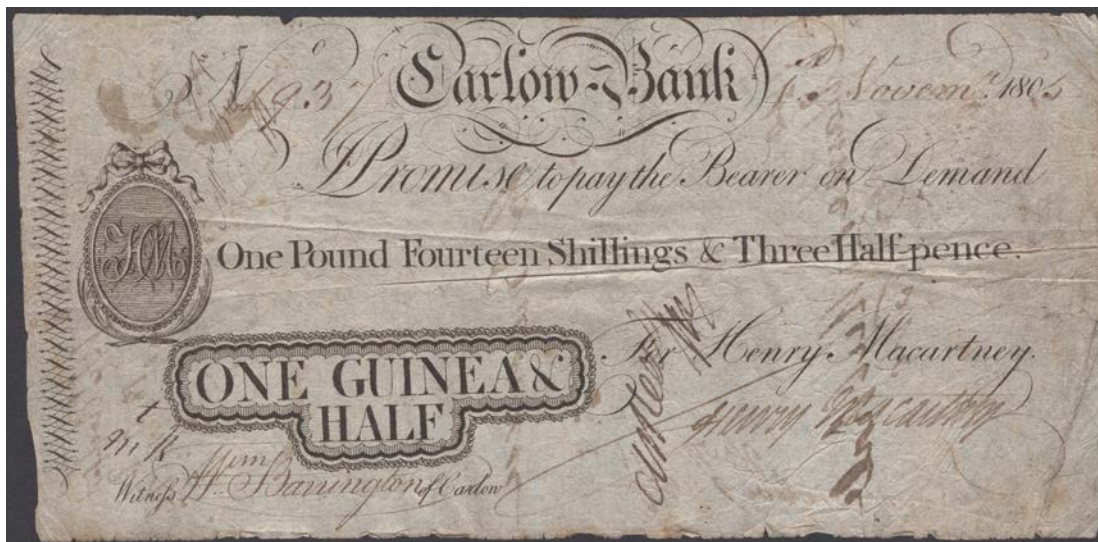 No 937 Carlow Bank Novemr. 1805
I Promise to pay the Bearer on Demand
HM
One Pound Fourteen Shillings & Three Half-pence.
For Henry Macartney.
ONE GUINEA &
HALF
Henry Macartney
Witness Wm. Barrington of Carlow